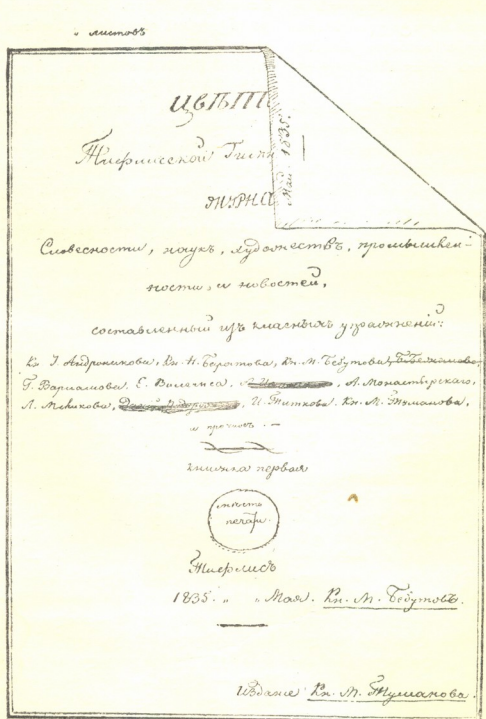 „ листовъ
ЦВѢТ
Тифлисской Гимн
ЖУРНА
Май 1835.
Словесности, наукъ, художествъ, промышлен-
ности, и новостей,
составленный изъ класныхъ упражненій:
Кн. І. Андроникова, Кн. Н. Вер Кн. М. Бебутова,
Г. Варламова, Е. А. Монастырскаго,
Л. Меликова, И. Титкова. Кн. М. Туманова,
и прочихъ. —
книжка первая
мѣсто
печати.
Тифлисъ
1835. „ „ Мая. Кн. М. Бебутовъ.
Изданіе Кн. М. Туманова.